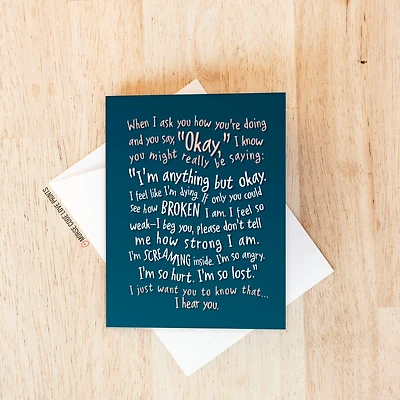 When I ask you how you're doing
and you say, "Okay," I know
you might really be saying:
"I'm anything but okay.
I feel like I'm dying. If only you could
see how BROKEN I am. I feel so
weak—I beg you, please don't tell
me how strong I am.
I'm SCREAMING inside. I'm so angry.
I'm so hurt. I'm so lost."
I just want you to know that...
I hear you.
© MORSE CODE LOVE PRINTS